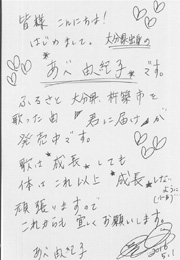 皆様 こんにちは!
はじめまして。大分県出身の
あべ由紀子 です。
ふるさと 大分県 杵築市を
歌った曲 "君に届け" が
発売中です。
歌は "成長" しても
体は これ以上 "成長" しない
ように
(いまは)
頑張りますので
これからも 宜しくお願いします。
あべ由紀子
2016
5.1